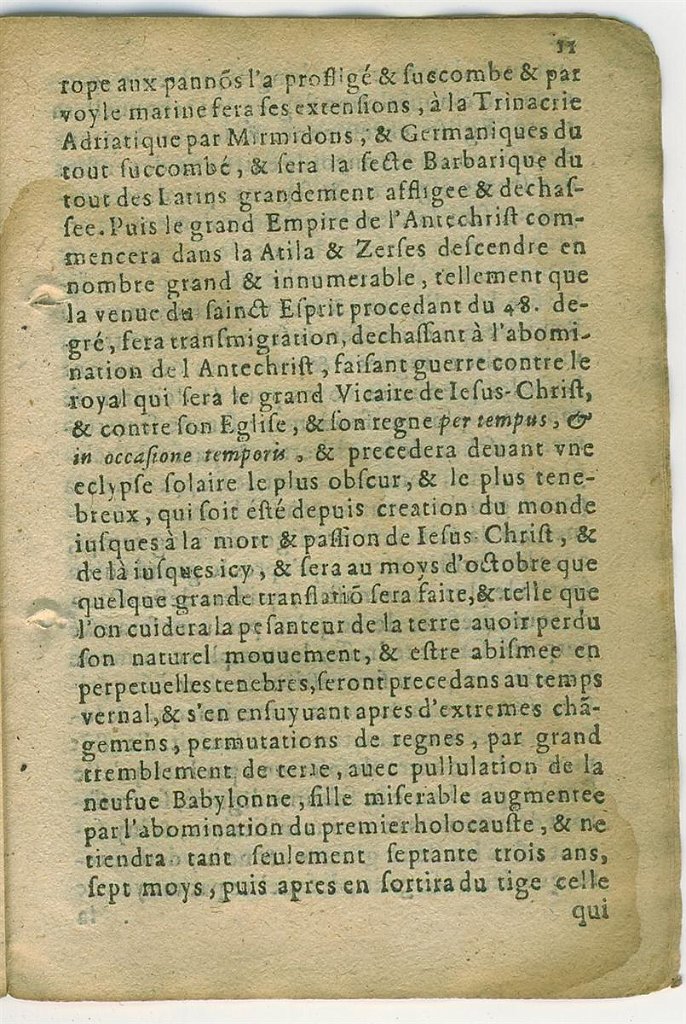 11
rope aux pannõs l'a profligé & ſuccombe & par
voyle marine fera ſes extenſions, à la Trinacrie
Adriatique par Mirmidons, & Germaniques du
tout ſuccombé, & ſera la ſecte Barbarique du
tout des Latins grandement affligee & dechaſ-
ſee. Puis le grand Empire de l'Antechriſt com-
mencera dans la Atila & Zerſes deſcendre en
nombre grand & innumerable, tellement que
la venue du ſainct Eſprit procedant du 48. de-
gré, fera tranſmigration, dechaſſant à l'abomi-
nation de l Antechriſt, faiſant guerre contre le
royal qui ſera le grand Vicaire de Ieſus-Chriſt,
& contre ſon Egliſe, & ſon regne per tempus, &
in occaſione temporis, & precedera deuant vne
eclypſe ſolaire le plus obſcur, & le plus tene-
breux, qui ſoit eſté depuis creation du monde
iuſques à la mort & paſſion de Ieſus Chriſt, &
de là iuſques icy, & ſera au moys d'octobre que
quelque grande tranſlatiõ ſera faite, & telle que
l'on cuidera la peſanteur de la terre auoir perdu
ſon naturel mouuement, & eſtre abiſmee en
perpetuelles tenebres, ſeront precedans au temps
vernal, & s'en enſuyuant apres d'extremes chã-
gemens, permutations de regnes, par grand
tremblement de terre, auec pullulation de la
neufue Babylonne, fille miſerable augmentee
par l'abomination du premier holocauſte, & ne
tiendra tant ſeulement ſeptante trois ans,
ſept moys, puis apres en ſortira du tige celle
qui